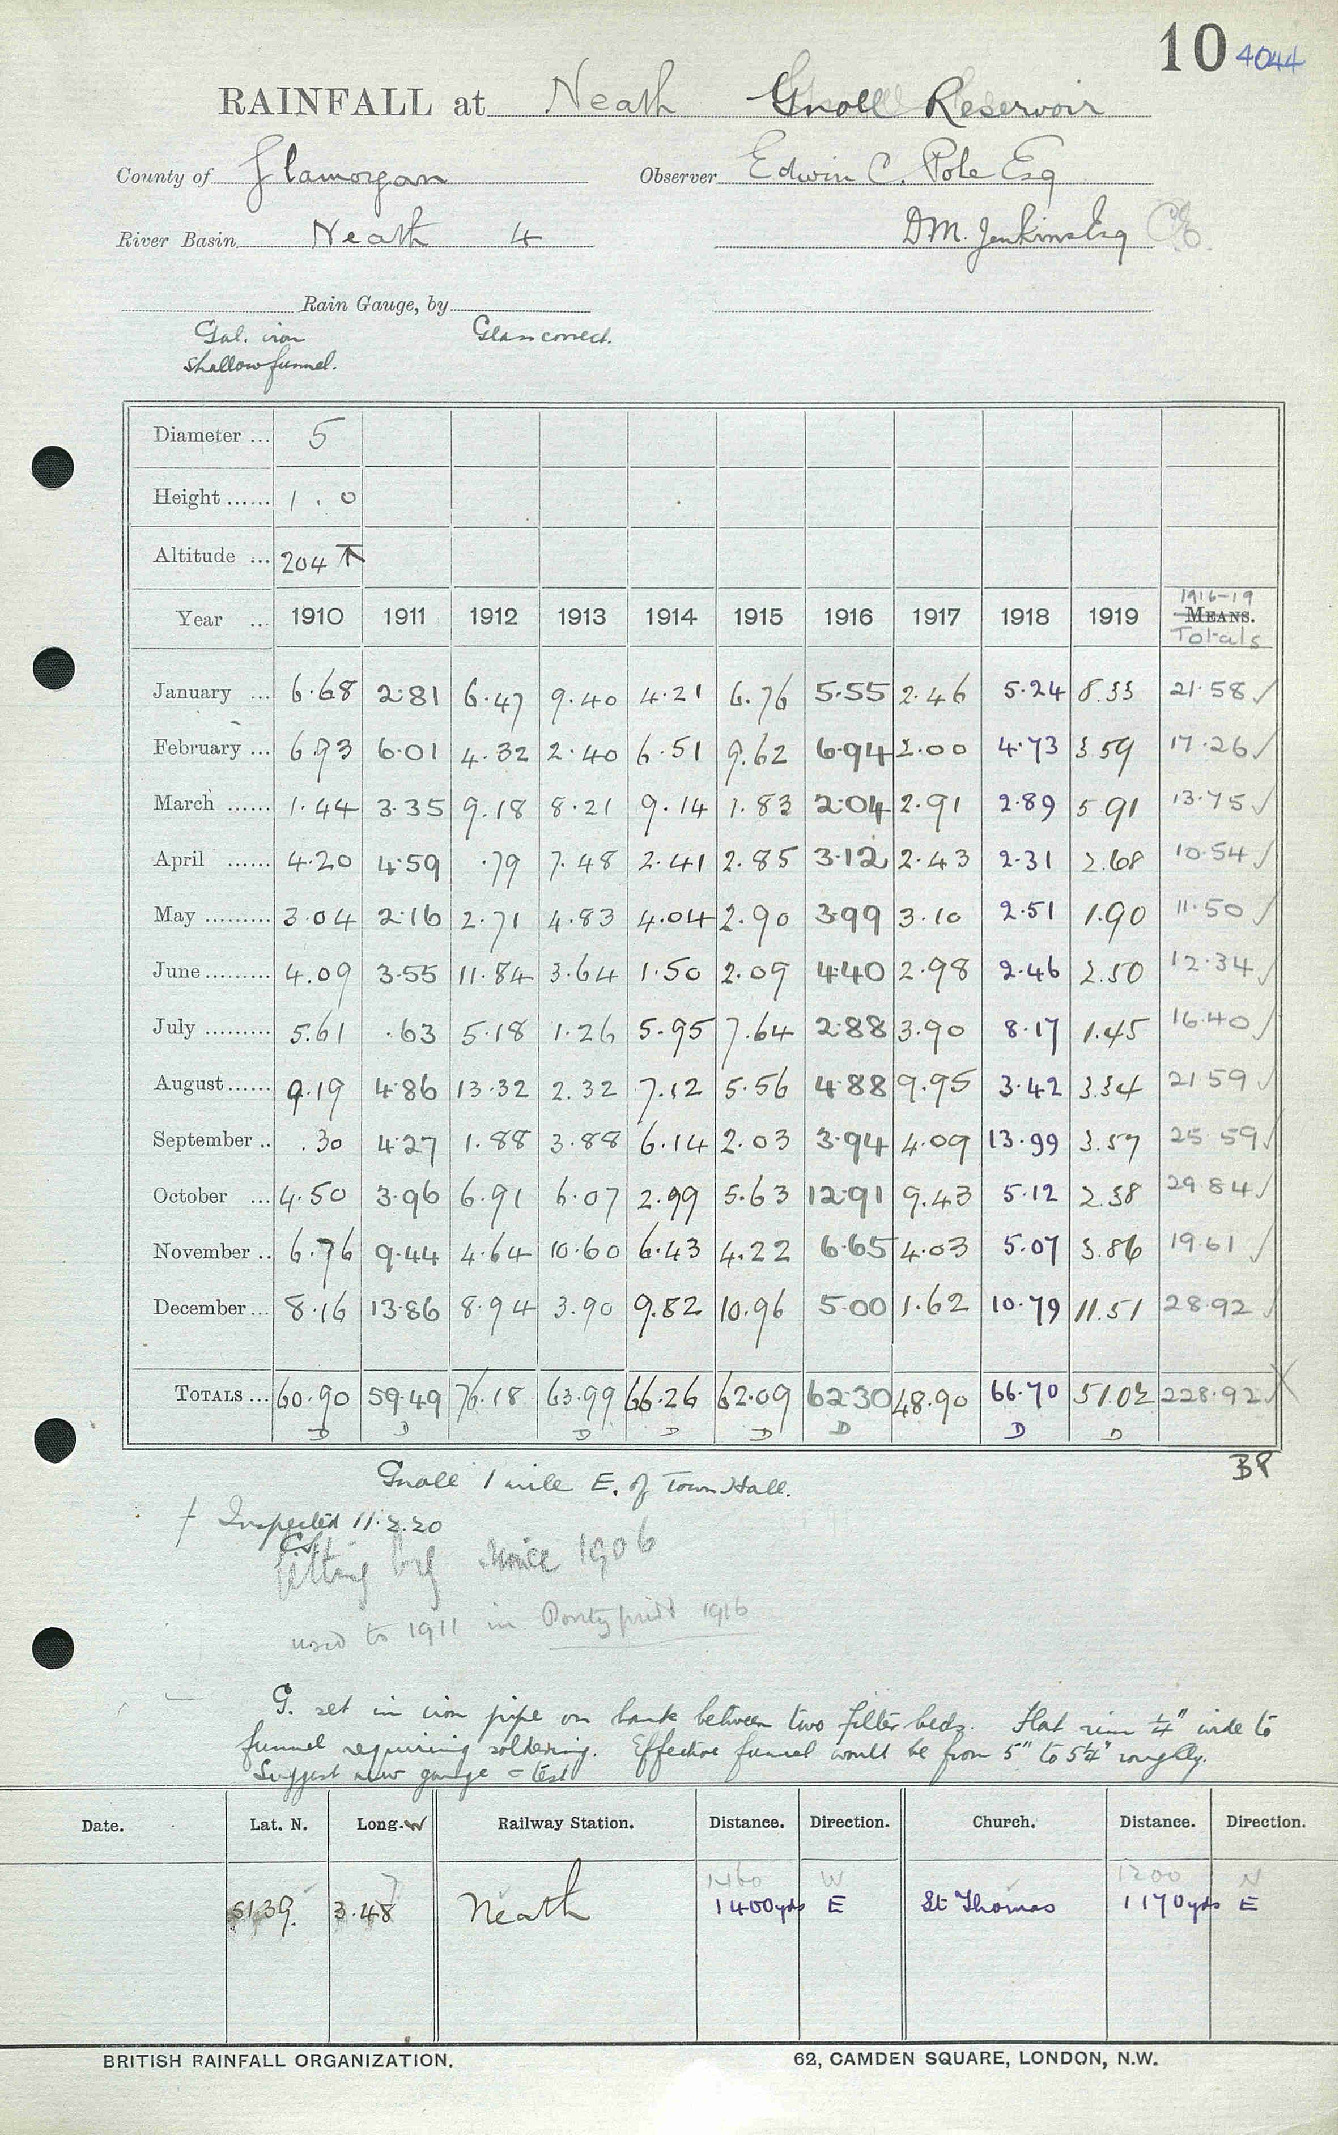 10 4044
RAINFALL at Neath Gnoll Reservoir
County of Glamorgan Observer Edwin C. Pole Esq
River Basin Neath 4 D.M. Jenkins Esq
Rain Gauge, by
Gal. iron Glass correct.
Shallow funnel.
Diameter ... 5
Height ...... 1 . 0
Altitude ... 204 T
1916-19
Year ... 1910 1911 1912 1913 1914 1915 1916 1917 1918 1919 MEANS.
Totals
January ... 6.68 2.81 6.47 9.40 4.21 6.76 5.55 2.46 5.24 8.33 21.58 ✓
February ... 6.93 6.01 4.32 2.40 6.51 9.62 6.94 2.00 4.73 3.59 17.26 ✓
March ...... 1.44 3.35 9.18 8.21 9.14 1.83 2.04 2.91 2.89 5.91 13.75 ✓
April ...... 4.20 4.59 .79 7.48 2.41 2.85 3.12 2.43 2.31 2.68 10.54 ✓
May ......... 3.04 2.16 2.71 4.83 4.04 2.90 3.99 3.10 2.51 1.90 11.50 ✓
June ......... 4.09 3.55 11.84 3.64 1.50 2.09 4.40 2.98 2.46 2.50 12.34 ✓
July ......... 5.61 .63 5.18 1.26 5.95 7.64 2.88 3.90 8.17 1.45 16.40 ✓
August ...... 9.19 4.86 13.32 2.32 7.12 5.56 4.88 9.95 3.42 3.34 21.59 ✓
September .. .30 4.27 1.88 3.88 6.14 2.03 3.94 4.09 13.99 3.57 25.59 ✓
October ... 4.50 3.96 6.91 6.07 2.99 5.63 12.91 9.43 5.12 2.38 29.84 ✓
November .. 6.76 9.44 4.64 10.60 6.43 4.22 6.65 4.03 5.07 3.86 19.61 ✓
December ... 8.16 13.86 8.94 3.90 9.82 10.96 5.00 1.62 10.79 11.51 28.92 ✓
TOTALS ... 60.90 59.49 76.18 63.99 66.26 62.09 62.30 48.90 66.70 51.02 228.92 ✓ X
D D D D D D D D
BP
Gnoll 1 mile E. of Town Hall.
† Inspected 11.2.20
since 1906
used to 1911 in Pontypridd 1916
G. set in iron pipe on bank between two filter beds. Flat rim ¼" wide to
funnel requiring soldering. Effective funnel would be from 5" to 5¼" roughly.
Suggest new gauge = test
Date. Lat. N. Long. W Railway Station. Distance. Direction. Church. Distance. Direction.
7 1460 W 1200 N
51 39 3.48 Neath 1400 yds E St Thomas 1170 yds E
BRITISH RAINFALL ORGANIZATION. 62, CAMDEN SQUARE, LONDON, N.W.